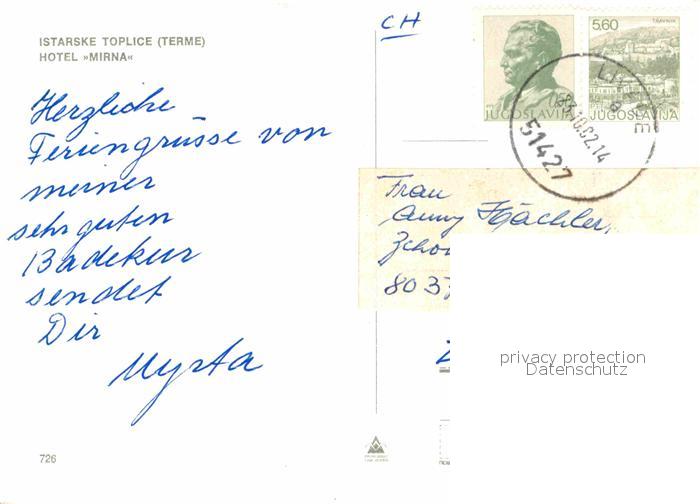 ISTARSKE TOPLICE (TERME)
HOTEL »MIRNA«
Herzliche
Feriengrüsse von
meiner
sehr guten
Badekur
sendet
Dir
Myrta
726
CH
JUGOSLAVIJA
5,60
TRAVNIK
JUGOSLAVIJA
51427
Frau
Anny Hächler,
8037
privacy protection
Datenschutz